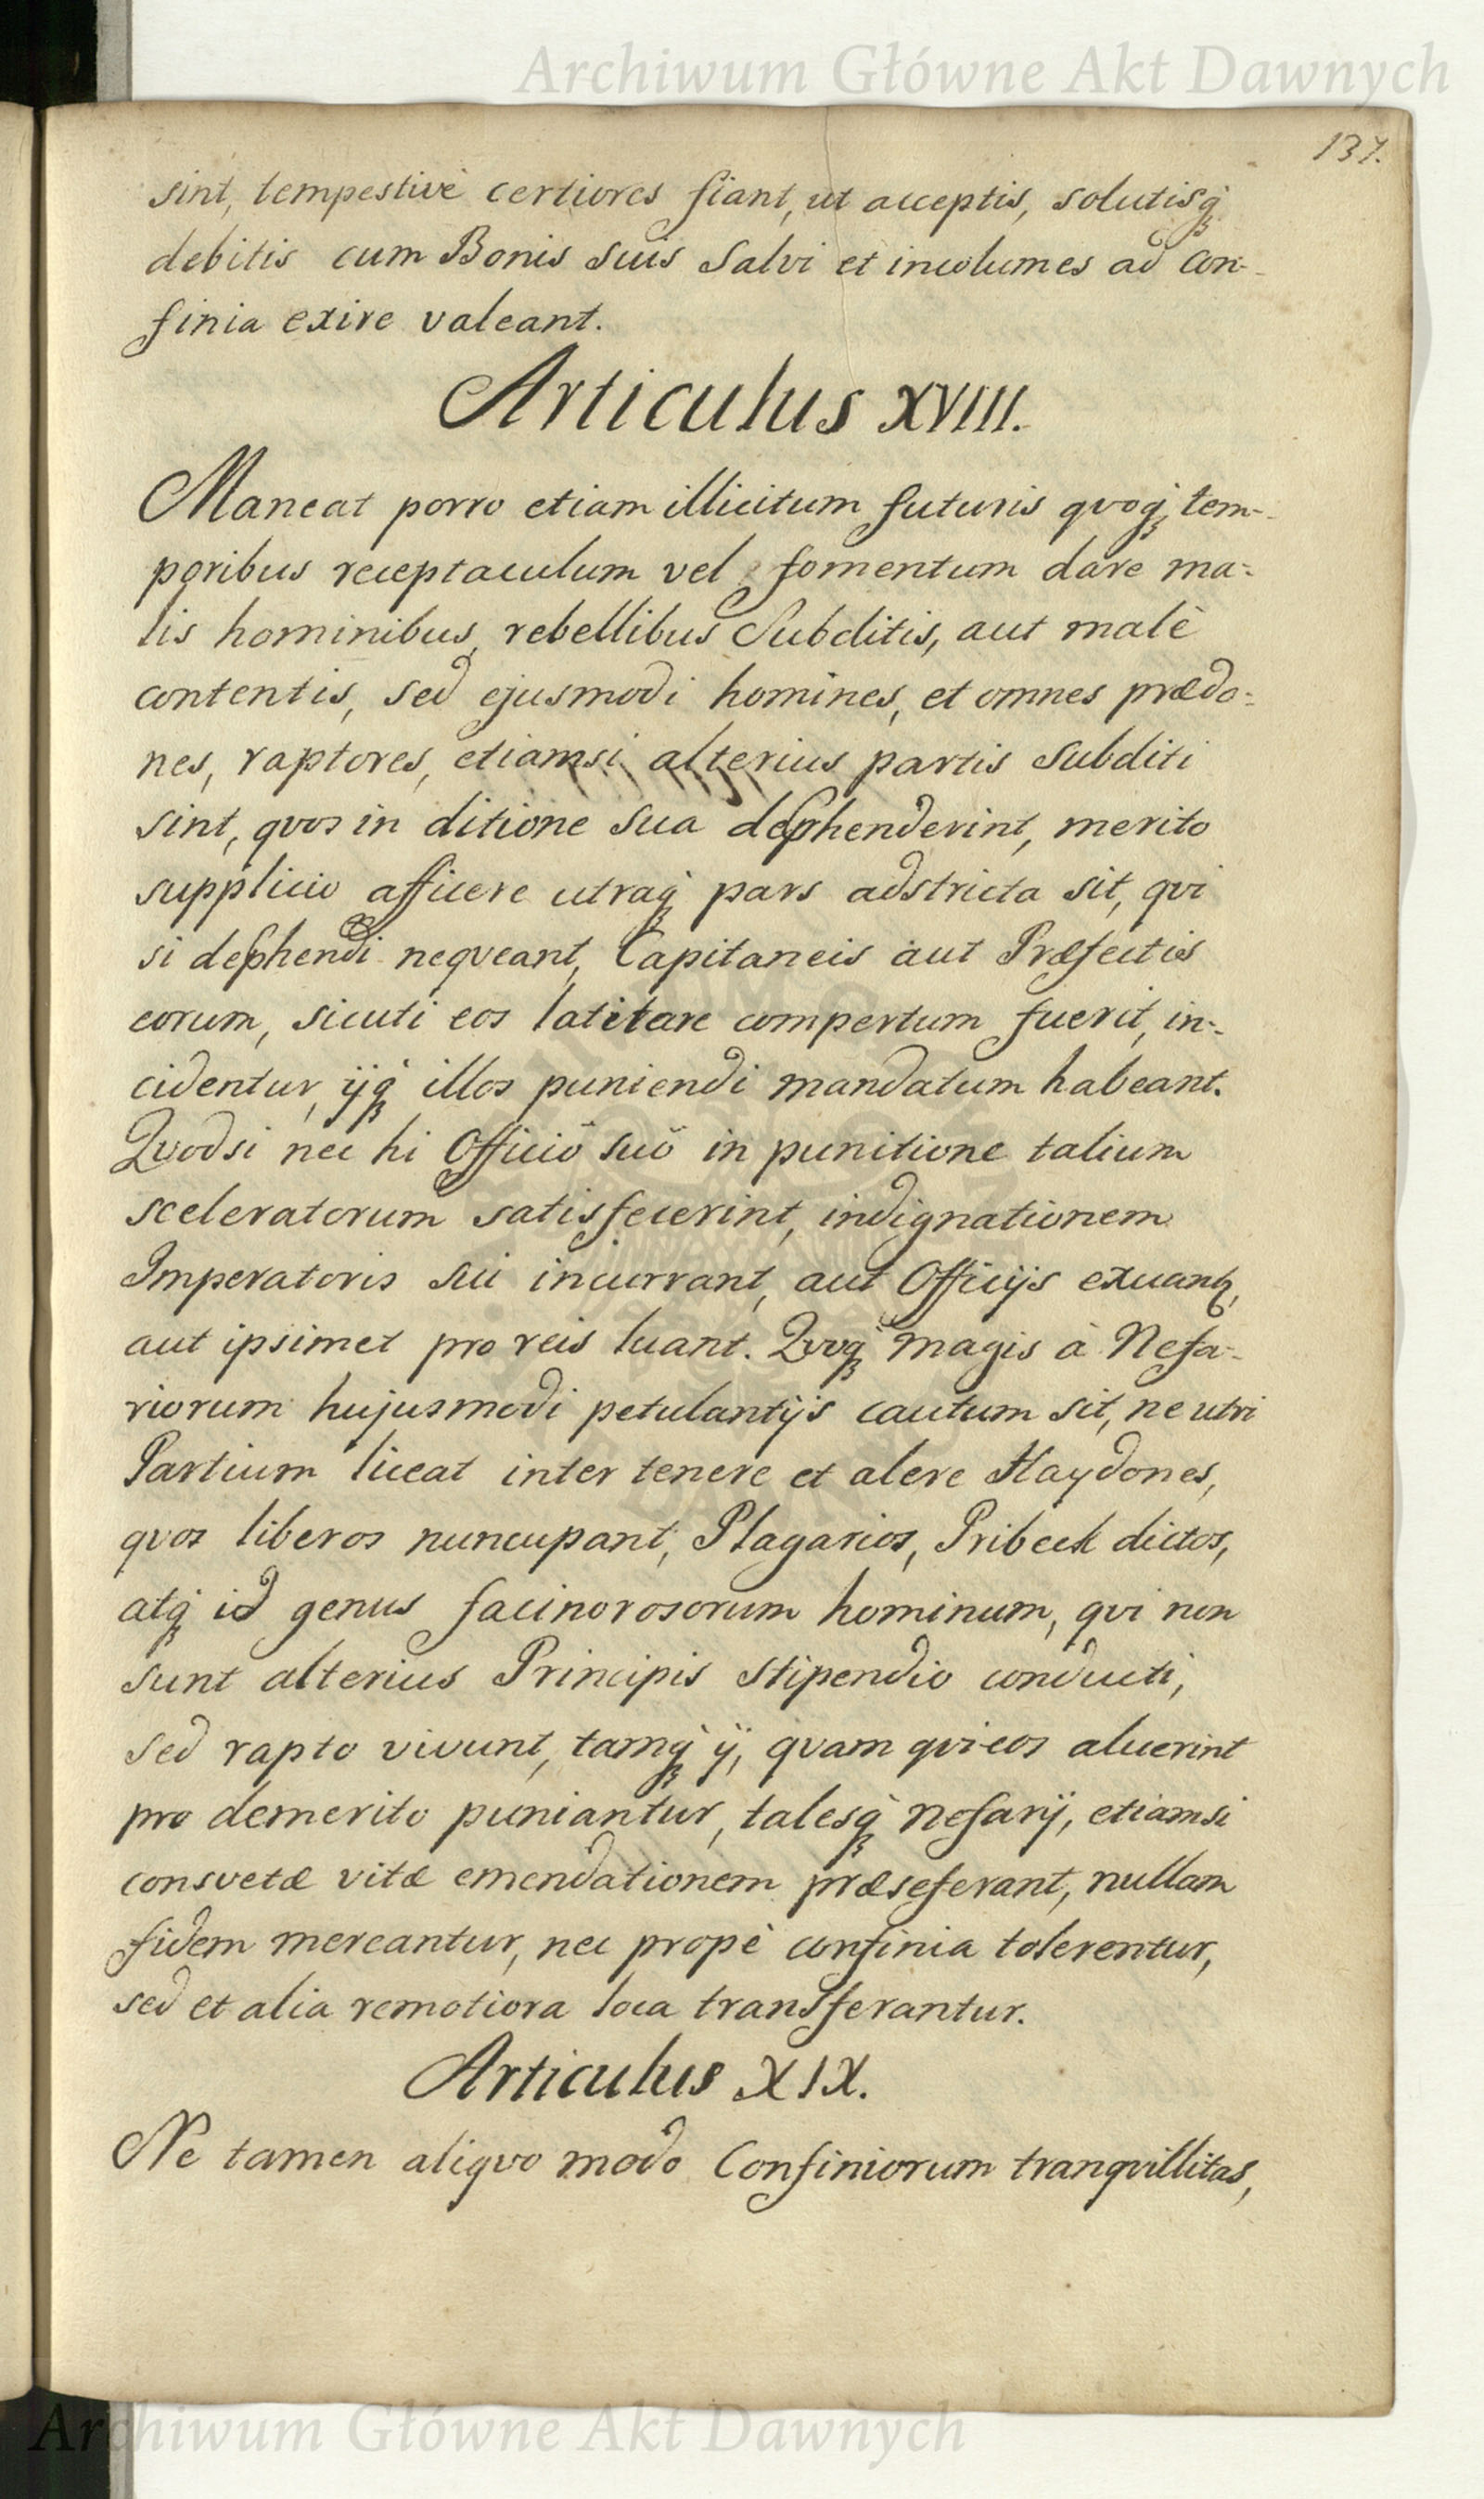 Archiwum Główne Akt Dawnych
137.
sint, tempestivè certiores fiant, ut acceptis, solutisq;
debitis cum Bonis suis Salvi et incolumes ad Con-
finia exire valeant.
Articulus XVIII.
Maneat porro etiam illicitum futuris qvoq; tem-
poribus receptaculum vel fomentum dare ma=
lis hominibus, rebellibus Subditis, aut malè
contentis, sed ejusmodi homines, et omnes prædo=
nes, raptores, etiamsi alterius partis Subditi
sint, qvos in ditione sua deprhenderint, merito
supplicio afficere utraq; pars adstricta sit, qvi
si deprhendi neqveant, Capitaneis aut Præfectis
eorum, sicuti eos latitare compertum fuerit, in-
cidentur, ijq; illos puniendi mandatum habeant.
Qvodsi nec hi Officiô suô in punitione talium
sceleratorum satisfecerint, indignationem
Imperatoris sui incurrant, aut Officijs exuant;,
aut ipsimet pro reis luant. Qvoq; magis à Nefa-
riorum hujusmodi petulantijs cautum sit, ne utri
Partium liceat inter tenere et alere Haydones,
qvos liberos nuncupant, Plagarios, Pribeck dictos,
atq; id genus facinorosorum hominum, qvi non
sunt alterius Principis Stipendio conducti,
sed rapto vivunt, tamq; ij, qvam qvi eos aluerint
pro demerito puniantur, talesq; nefarij, etiamsi
consvetæ vitæ emendationem præseferant, nullam
fidem mereantur, nec propè confinia tolerentur,
sed et alia remotiora loca transferantur.
Articulus XIX.
Ne tamen aliqvo modo Confiniorum tranqvillitas,
Archiwum Główne Akt Dawnych